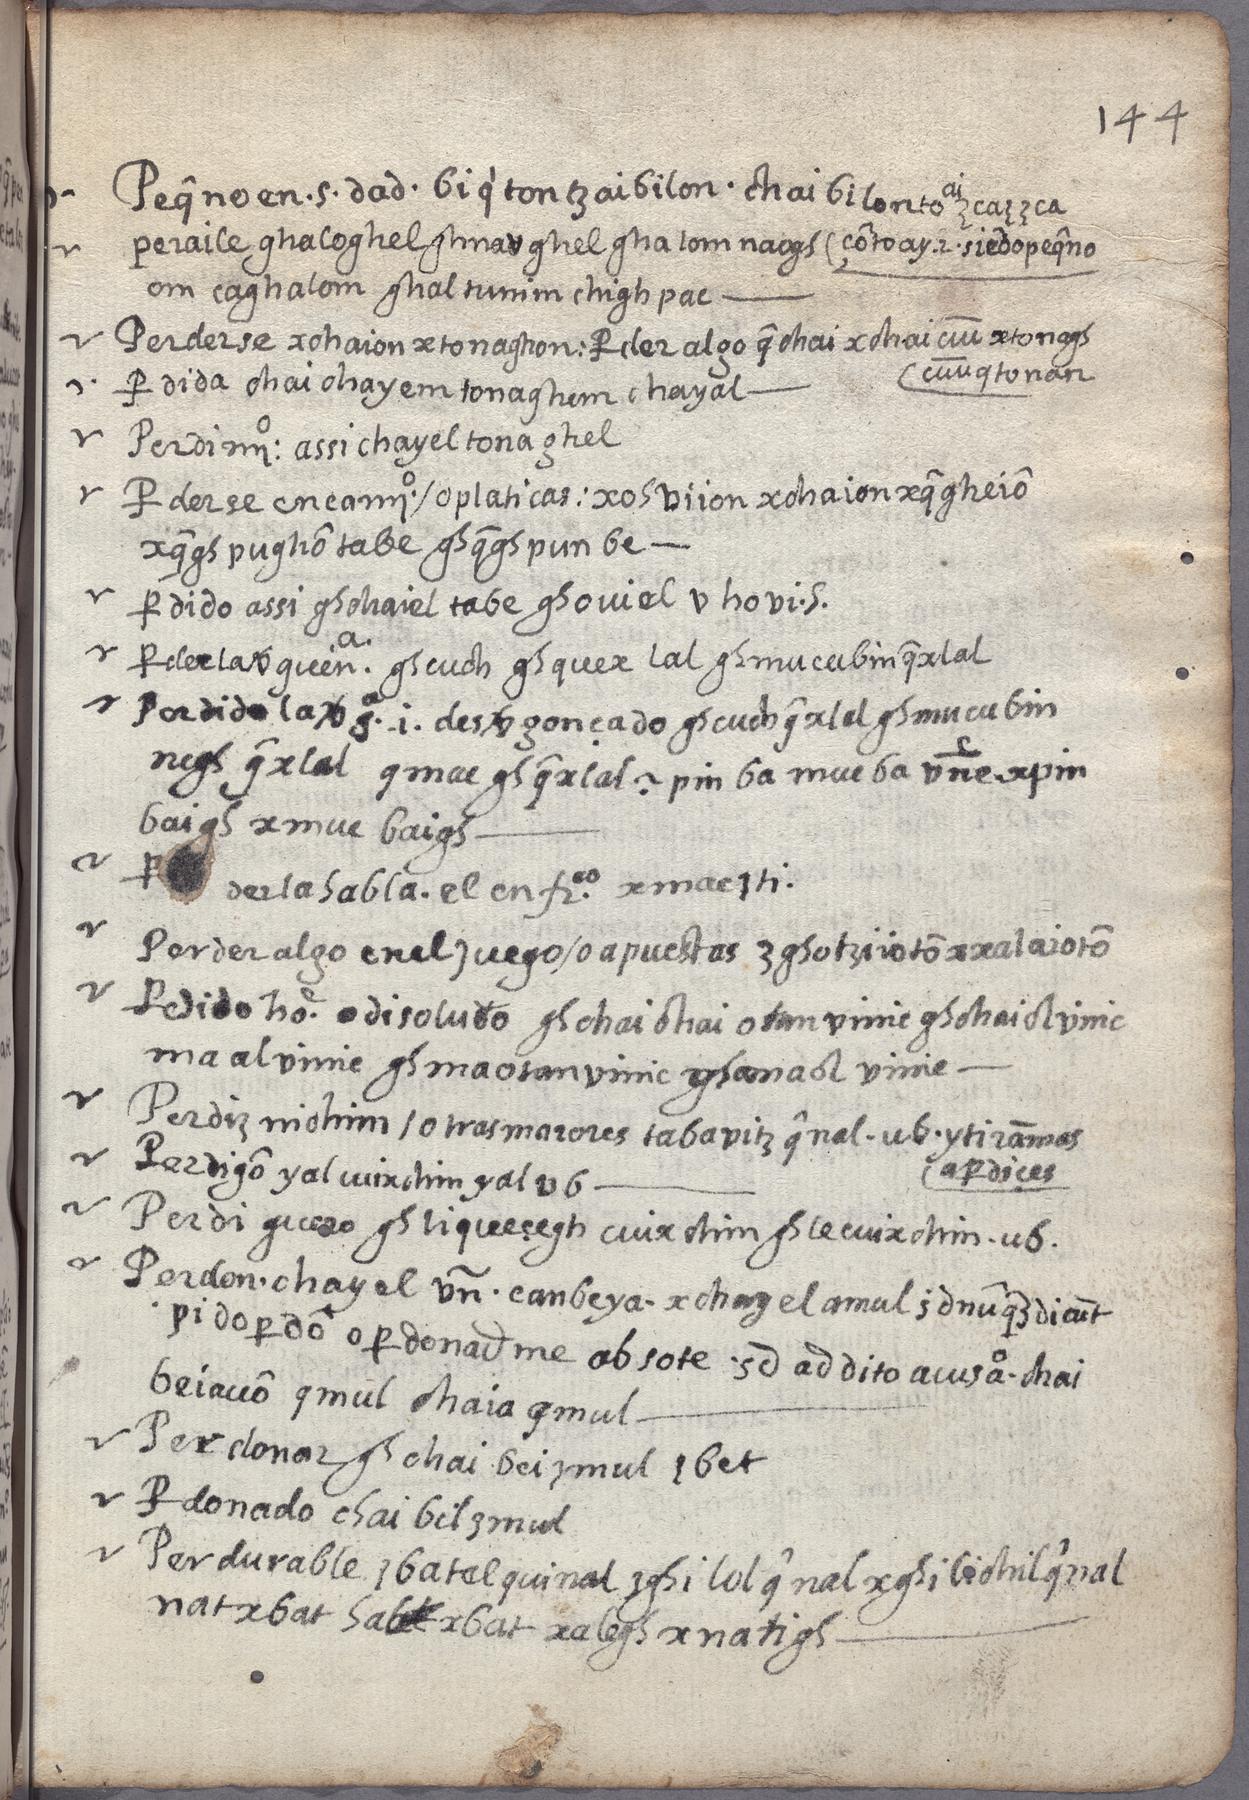 144
Peq̃no en .s. dad. biq' tontzaibilon. chaibilonto ai ꝫcaꝫꝫca
peraile ghaloghel ghnav ghel ghalomnaegs (cõto ay.r. siẽdo peq̃no
om caghalom ghal tunim chigh pac
Perderse xchaion xtonaghon: ꝑder algo q̃ chai xchai cuu xtonaggs
(cuu qtonan
ꝑdida chai chayem tonaghem chayal
Perdimº: assi chayel tonaghel
ꝑderse en camº./o platicas: xosviion xchaion xq̃gheiõ
xq̃gs pughõ tabe gs q̃gs pun be
ꝑdido assi gs chaiel tabe gs oviel v hovi.s.
ꝑder la v̄guen.a gs cuch gs quex lal gs mucubin q̃xlal
Perdido la v̄g.a .i. desv̄gonçado gs cuch q̃xlal gs mucubin
negs q̃xlal qmac gs q̃xlal. pin ba mucba vñe xpin
baigs xmuc baigs
ꝑ der la habla. el enfr.eo xmacꝫti.
Perder algo en el juego/o apuestas ꝫgs otziiotõ xxalaiotõ
ꝑdido hõ.e o disoluto gs chai chai otan vinic gs chai chl vinic
ma al vinic gs ma otan vinic gs ma chl vinic
Perdiz nichim / otras maiores tabavitz q̃nal. ub. y tirãmas
(a ꝑdices
Perdigõ yal cuixchim yal vb
Perdiguero gs liqueçegh cuixchim gs le cuixchim. ub.
Perdon. chayel vñ. canbeya. xchayel amul ꝫ dnũq̃ꝫ dicũt
pido ꝑdõ o ꝑdonadme absote. sd addito acusº. chai
beiavõ qmul chaia qmul
Perdonar gs chai bei ꝫmul ꝫbet
ꝑdonado chaibil ꝫmul
Perdurable ꝫbatel quinal ꝫgsilol q'nal xgsilichil q'nal
natxbat xbat xalegs xnatigs